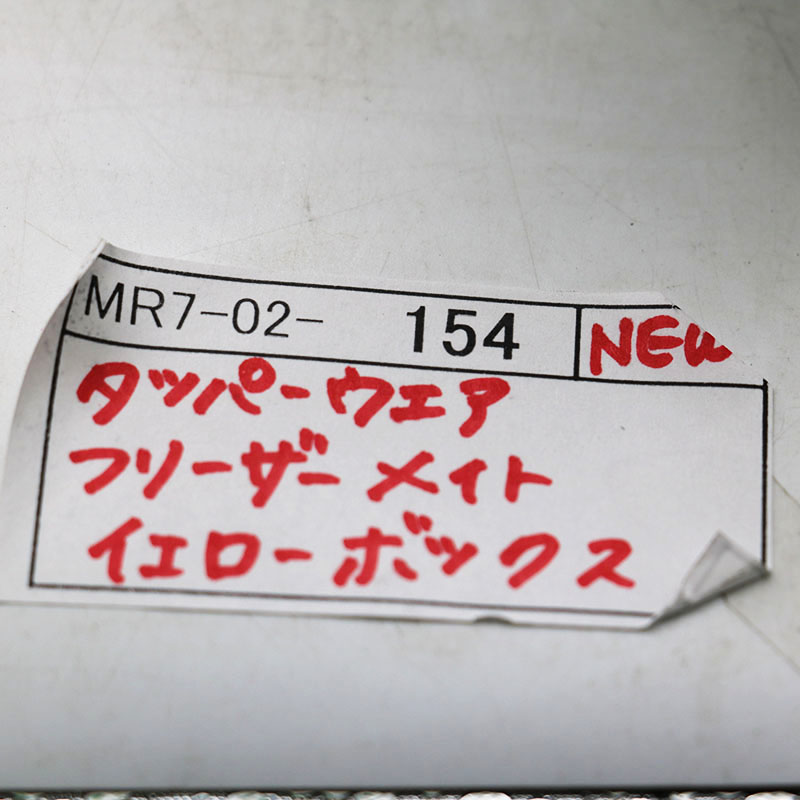 MR7-02- 154 NEW
タッパーウエア
フリーザーメイト
イエローボックス